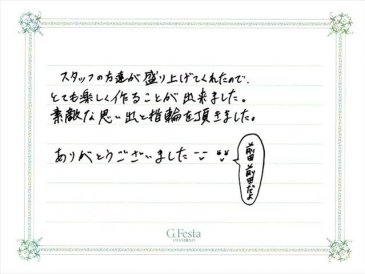 スタッフの方達が盛り上げてくれたので、
とても楽しく作ることが出来ました。
素敵な思い出と指輪を頂きました。
ありがとうございました
前田前田だよ
G.Festa